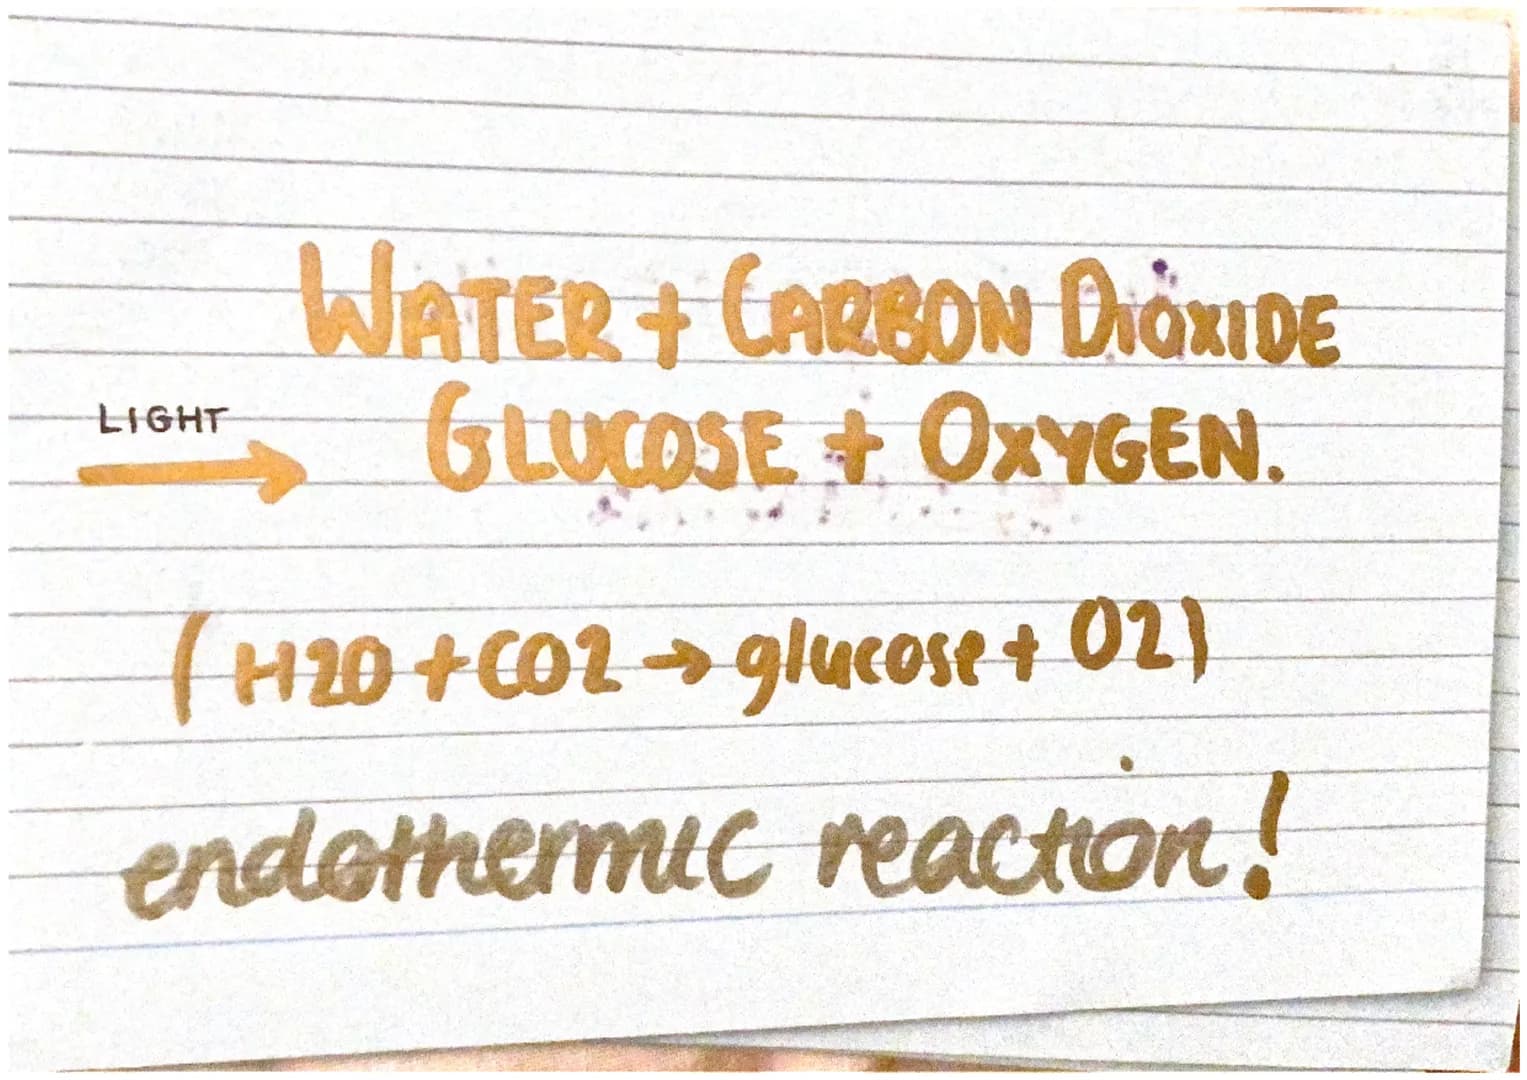 WATER + CARBON DIOXIDE
LIGHT
→ GLUCOSE + OXYGEN.
(H2O + CO2 → glucose + O2)
endothermic reaction!